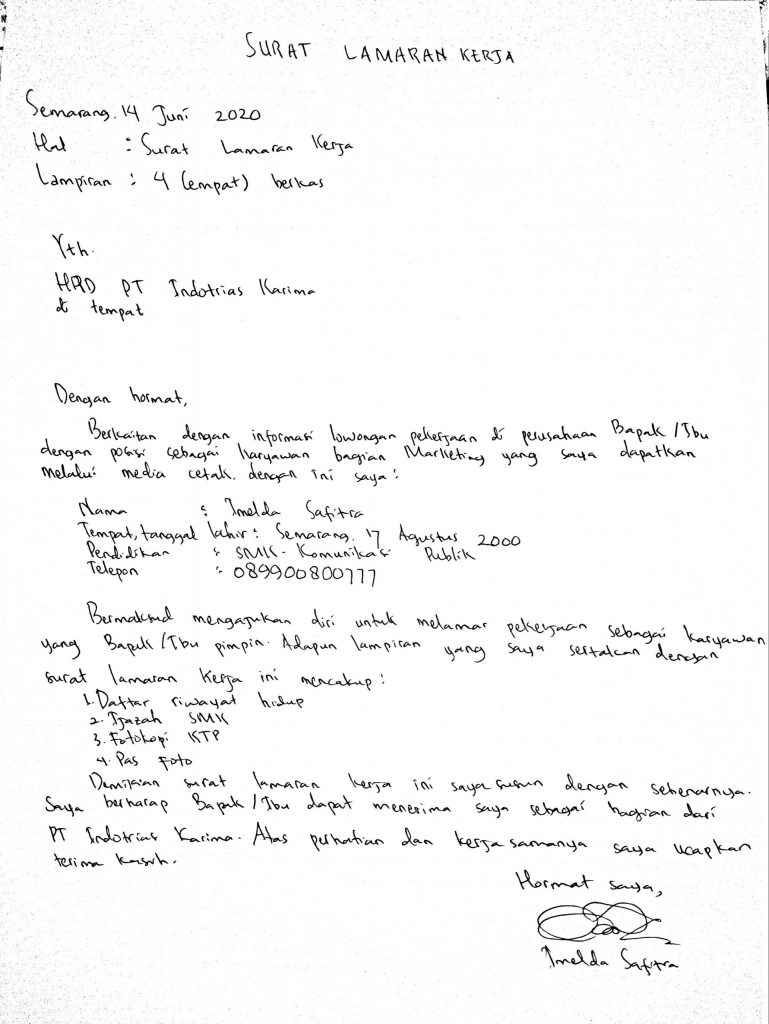 SURAT LAMARAN KERJA
Semarang, 14 Juni 2020
Hal : Surat Lamaran Kerja
Lampiran : 4 (empat) berkas
Yth.
HRD PT Indotrias Karima
di tempat
Dengan hormat,
Berkaitan dengan informasi lowongan pekerjaan di perusahaan Bapak/Ibu
dengan posisi sebagai karyawan bagian Marketing yang saya dapatkan
melalui media cetak, dengan ini saya:
Nama : Imelda Safitra
Tempat, tanggal lahir : Semarang, 17 Agustus 2000
Pendidikan : SMK - Komunikasi Publik
Telepon : 089900800777
Bermaksud mengajukan diri untuk melamar pekerjaan sebagai karyawan
yang Bapak/Ibu pimpin. Adapun lampiran yang saya sertakan dengan
surat lamaran kerja ini mencakup:
1. Daftar riwayat hidup
2. Ijazah SMK
3. Fotokopi KTP
4. Pas Foto
Demikian surat lamaran kerja ini saya susun dengan sebenarnya.
Saya berharap Bapak/Ibu dapat menerima saya sebagai bagian dari
PT Indotrias Karima. Atas perhatian dan kerja samanya saya ucapkan
terima kasih.
Hormat saya,
Imelda Safitra